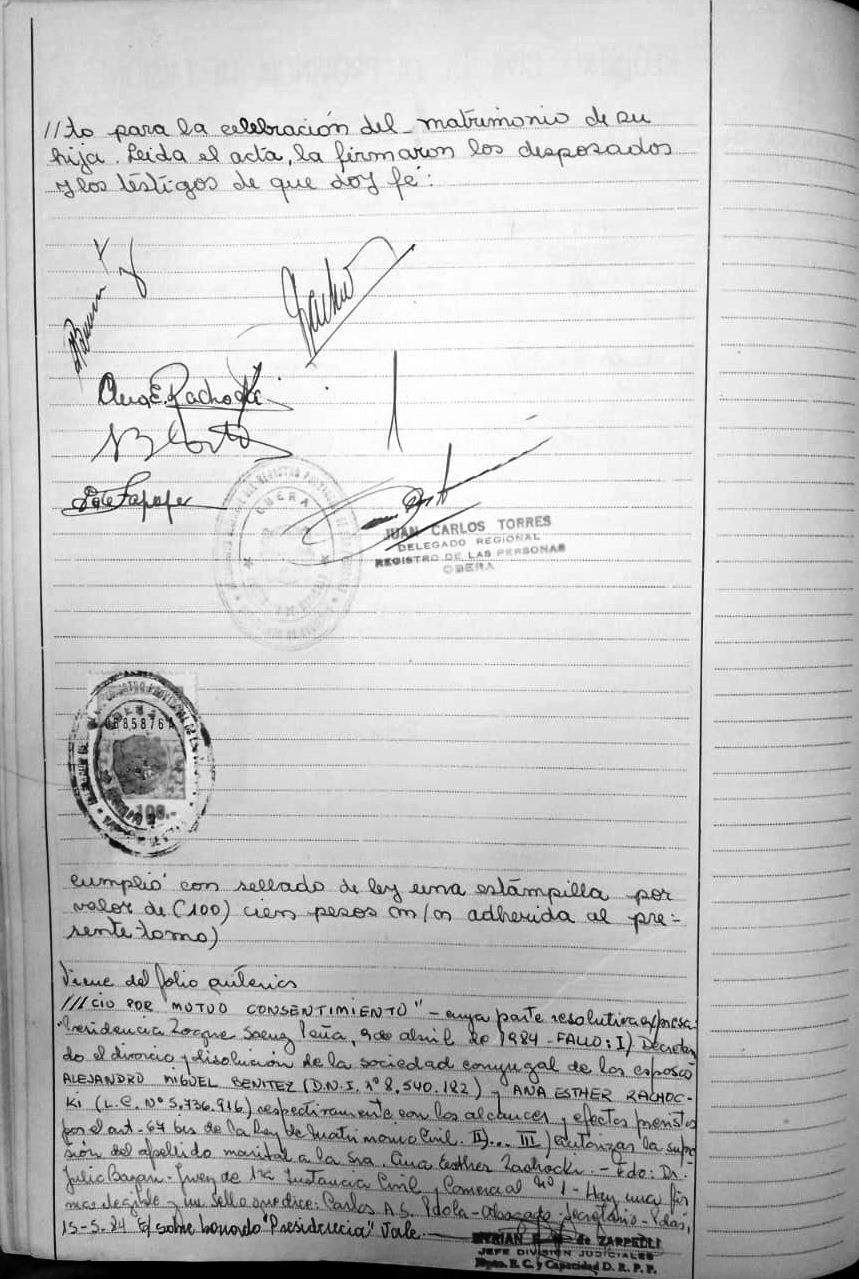 //to para la celebración del matrimonio de su
hija. Leida el acta, la firmaron los desposados
y los testigos de que doy fé:
Ana E. Rachocki
OBERA
JUAN CARLOS TORRES
DELEGADO REGIONAL
REGISTRO DE LAS PERSONAS
OBERA
0885876A
100.-
cumplió con sellado de ley una estampilla por
valor de (100) cien pesos m/n adherida al pre=
sente tomo)
Viene del folio anterior
///CIO POR MUTUO CONSENTIMIENTO" - cuya parte resolutiva expresa:
"Presidencia Roque Saenz Peña, 9 de abril de 1984 - FALLO: I) Decretan
do el divorcio y disolución de la sociedad conyugal de los esposos
ALEJANDRO MIGUEL BENITEZ (D.N.I. nº 8.540.182) y ANA ESTHER RACHOC-
KI (L.C. Nº 5.736.916) respectivamente con los alcances y efectos previstos
por el art. 67 bis de la Ley de Matrimonio Civil. II)... III) autorizar la supre
sión del apellido marital a la Sra. Ana Esther Rachocki. - Fdo: Dr.
Julio - Juez de 1ra Instancia Civil y Comercial nº 1 - Hay una fir
ma ilegible y un sello que dice: Carlos A.S. - Abogado - Secretario - Pdas,
15-5-84 E/ sobre borrado "Presidencia" Vale.
MYRIAN de ZARPELLI
JEFE DIVISION JUDICIALES
Dpto. E. C. y Capacidad D. R. P. P.